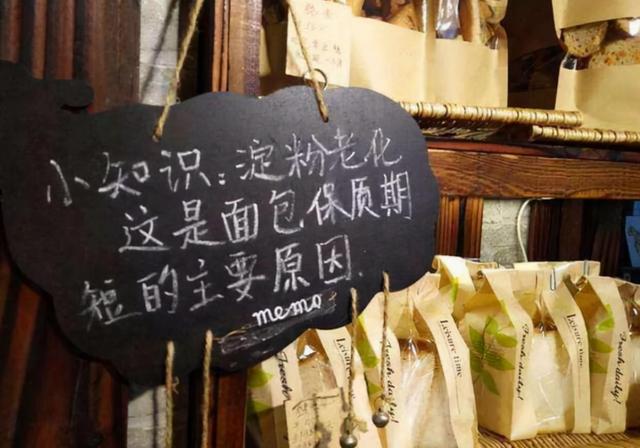 小知识：淀粉老化
这是面包保质期
短的主要原因.
memo
Fresh daily!
Leisure time
Fresh daily!
Leisure time
Fresh daily!